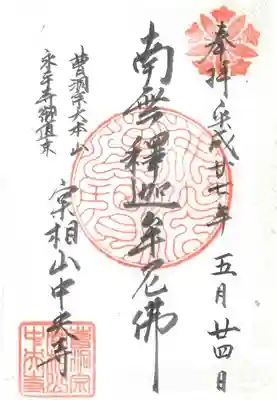 奉拝 平成廿七年 五月廿四日
南無釋迦牟尼佛
曹洞宗大本山
永平寺御直末
宗相山中央寺